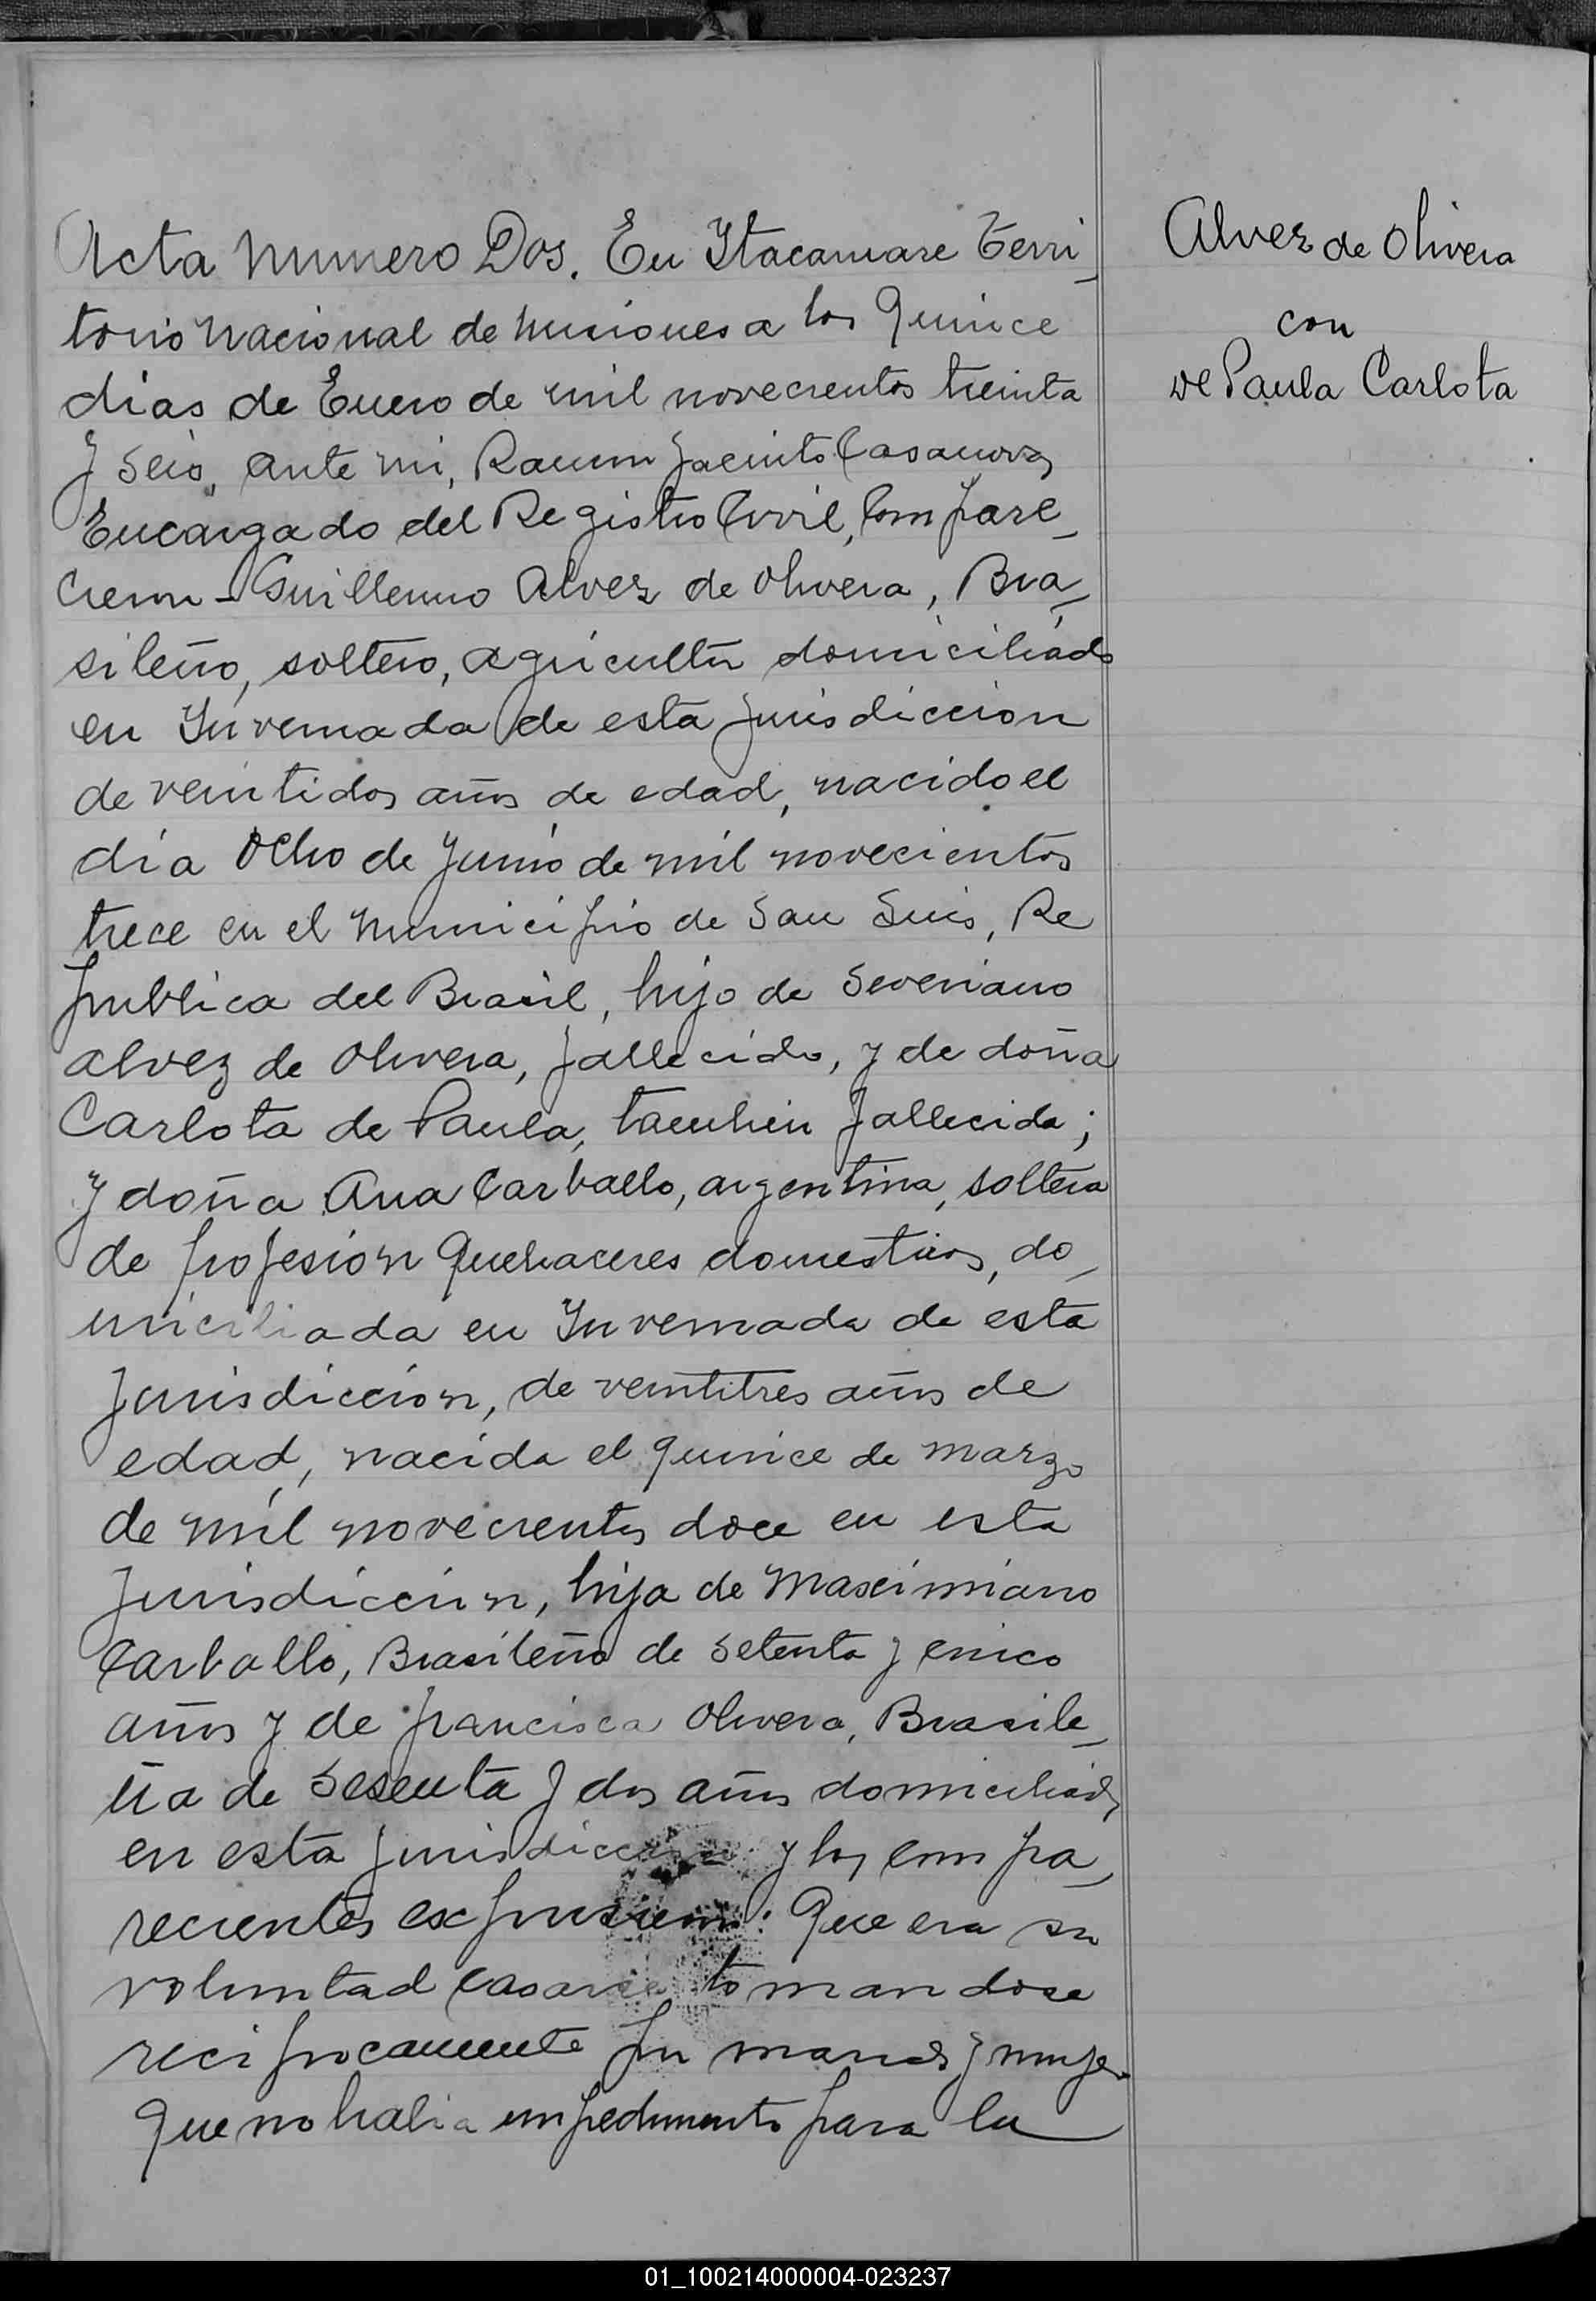 Acta Numero Dos. En Itacaruare Terri-
torio Nacional de Misiones a los Quince
dias de Enero de mil novecientos treinta
y seis, ante mi, Ramon Jacinto Casanova,
Encargado del Registro Civil, Compare-
cieron - Guillermo Alvez de Olivera, Bra-
sileño, soltero, agricultor domiciliado
en Invernada de esta jurisdiccion
de veintidos años de edad, nacido el
dia Ocho de Junio de mil novecientos
trece en el Municipio de San Luis, Re
publica del Brasil, hijo de Severiano
Alvez de Olivera, fallecido, y de doña
Carlota de Paula, tambien fallecida;
y doña Ana Carballo, argentina, soltera
de profesion Quehaceres domesticos, do-
miciliada en Invernada de esta
Jurisdiccion, de veintitres años de
edad, nacida el quince de marzo
de mil novecientos doce en esta
Jurisdiccion, hija de Masximiano
Carballo, Brasileño de setenta y cinco
años y de francisca Olivera, Brasile-
ña de sesenta y dos años domiciliados
en esta jurisdiccion y los compa-
recientes expusieron: Que era su
voluntad casarse tomandose
reciprocamente por marido y mujer
Que no habia impedimento para la
Alvez de Olivera
con
de Paula Carlota
01_100214000004-023237